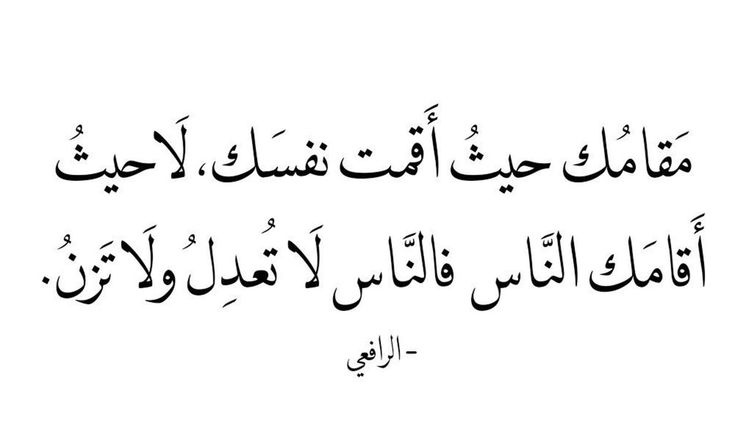 مَقامُك حيثُ أَقمت نفسَك، لَا حيثُ
أَقامَك النَّاس فالنَّاس لَا تُعدِلُ ولَا تَزنُ.
- الرافعي